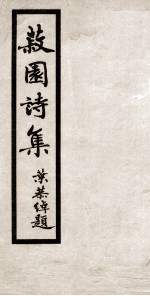 菽園詩集
葉恭綽題